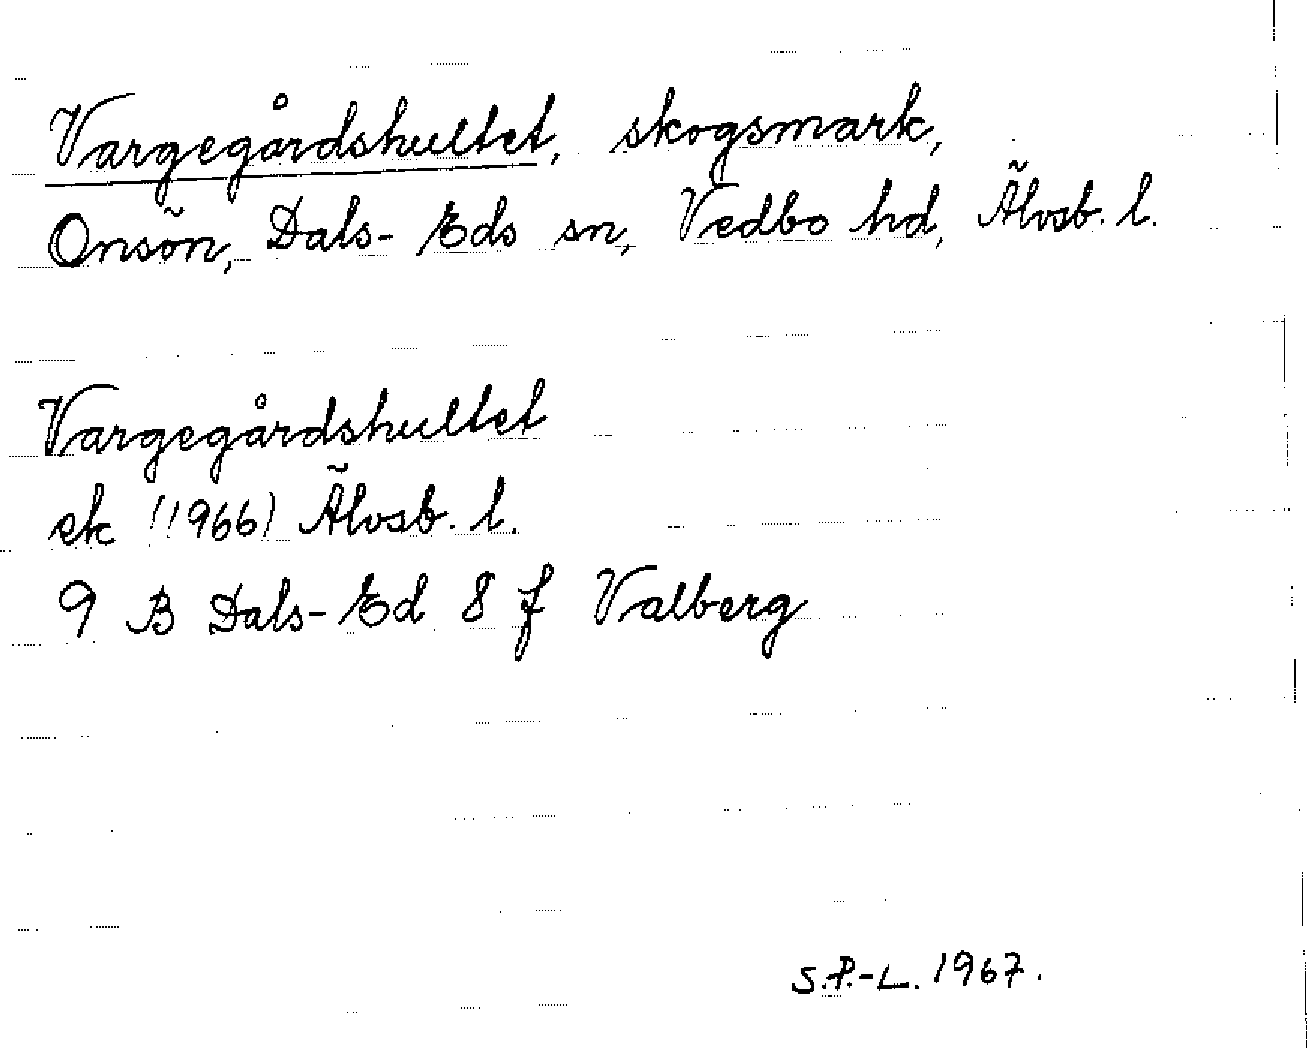 Vargegårdshultet, skogsmark,
Onsön, Dals-Eds sn, Vedbo hd, Älvsb. l.
Vargegårdshultet
ek (1966) Älvsb. l.
9 B Dals-Ed 8 f Valberg
S.P.-L. 1967.